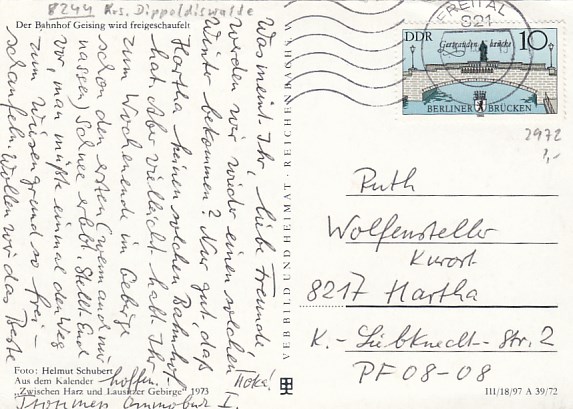 8244 Krs. Dippoldiswalde
Der Bahnhof Geising wird freigeschaufelt
Was meint Ihr, liebe Freunde
werden wir wieder einen solchen
Winter bekommen? Nur gut, daß
Hartha keinen solchen Bahnhof
hat. Aber vielleicht habt Ihr
zum Wochenende im Gebirge
schon den ersten (wenn auch nur
nassen) Schnee erlebt. Stellt Euch
vor, man müßte einmal den Weg
zum Wiesengrund so frei-
schaufeln. Wollen wir das Beste
hoffen.
Foto: Helmut Schubert
Aus dem Kalender
"Zwischen Harz und Lausitzer Gebirge" 1973
VEB BILD UND HEIMAT · REICHENBACH
FREITAL
821
DDR
10
Gertraudenbrücke
BERLINER BRÜCKEN
2972
1,-
Ruth
Wolfensteller
Kurort
8217 Hartha
K.-Liebknecht-Str. 2
PF 08-08
III/18/97 A 39/72